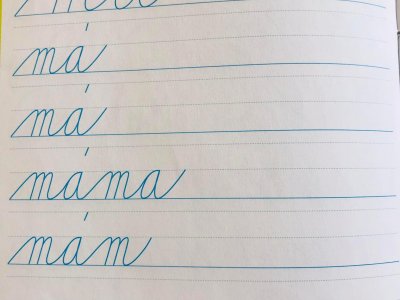 má
má
máma
mám